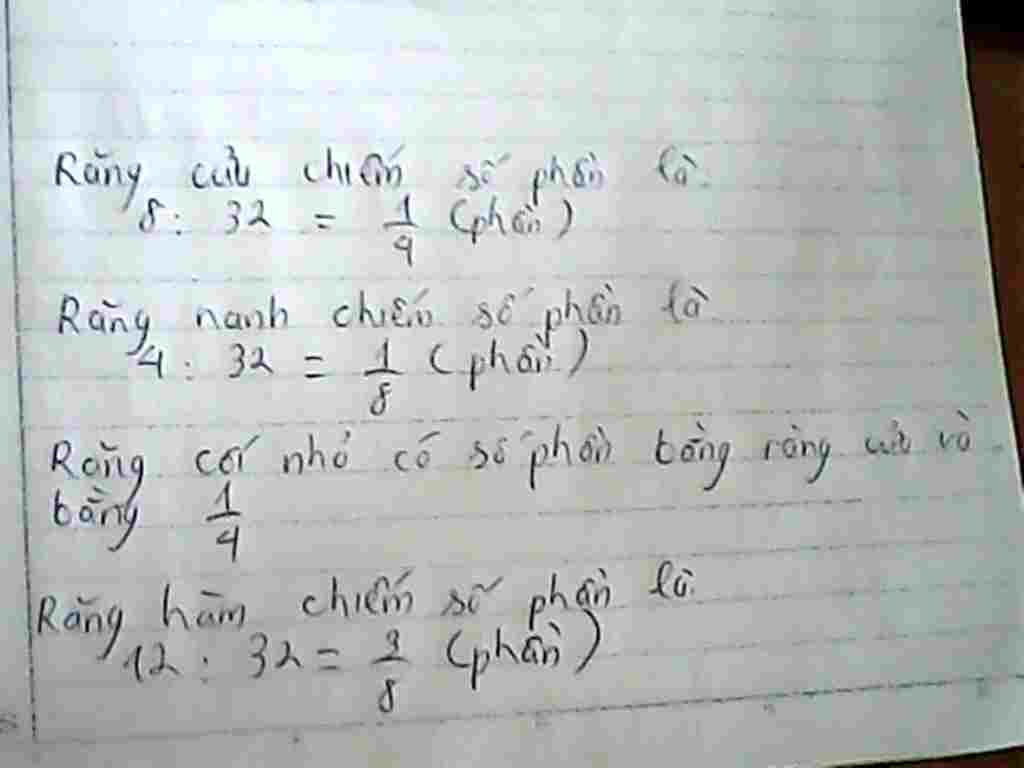 Răng cửa chiếm số phần là.
8 : 32 = 1/4 (phần)
Răng nanh chiếm số phần là
4 : 32 = 1/8 (phần)
Răng cối nhỏ có số phần bằng răng cửa và
bằng 1/4
Răng hàm chiếm số phần là.
12 : 32 = 3/8 (phần)